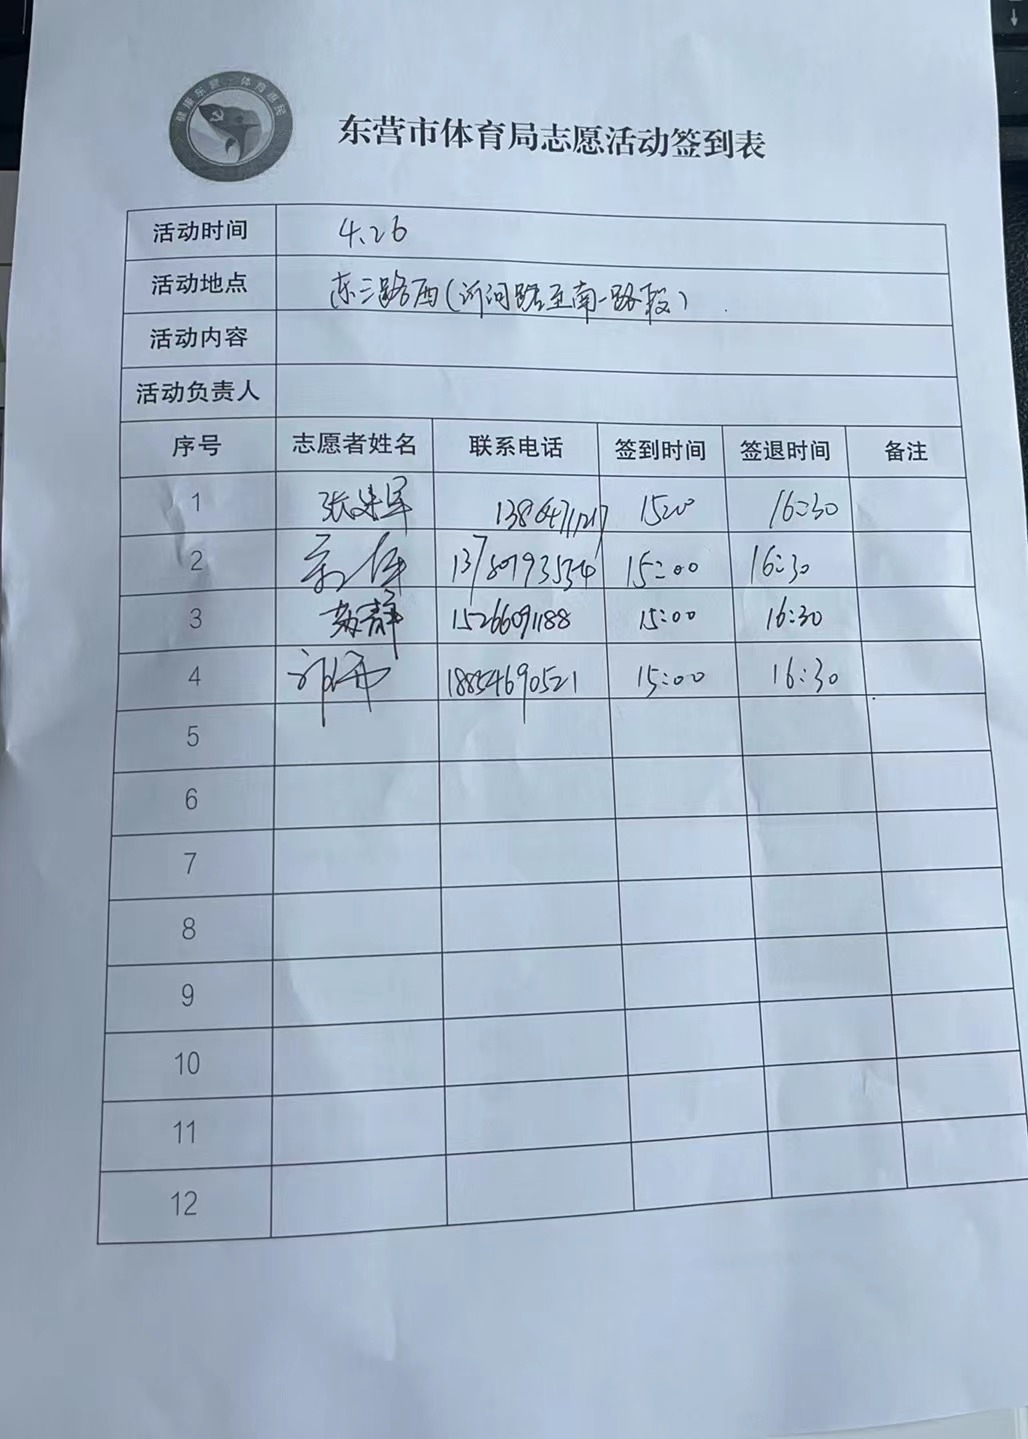 健康东营·体育惠民
东营市体育局志愿活动签到表
活动时间 4.26
活动地点 东三路西(沂河路至南一路段)
活动内容
活动负责人
序号 志愿者姓名 联系电话 签到时间 签退时间 备注
1 张 1500 16:30
2 15:00 16:30
3 静 15266091188 15:00 16:30
4 18854690521 15:00 16:30
5
6
7
8
9
10
11
12